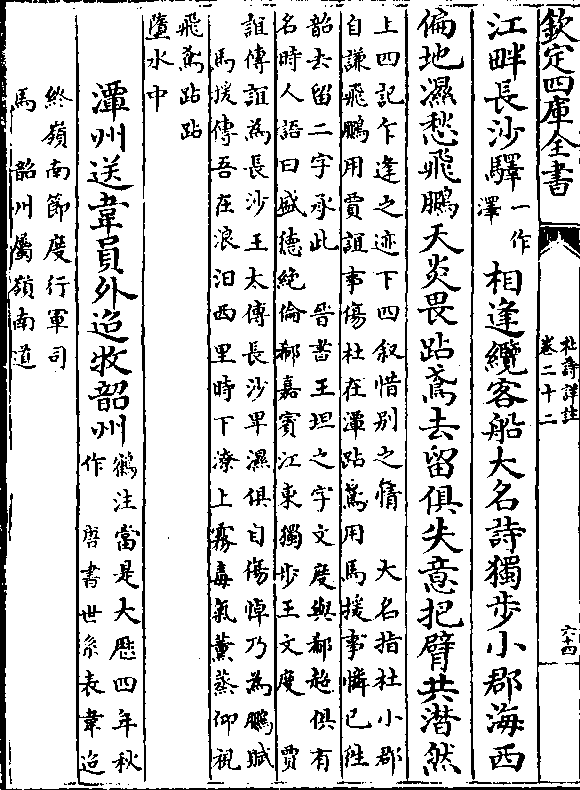 欽定四庫全書
杜詩詳註
卷二十二
六十四
江畔長沙驛一作澤相逢纜客船大名詩獨步小郡海西
偏地濕愁飛鵩天炎畏跕鳶去留俱失意把臂共潸然
上四記乍逢之迹下四叙惜别之情　大名指杜小郡
自謙飛鵩用賈誼事傷杜在潭跕鳶用馬援事憐已徃
韶去留二字承此　晉書王坦之字文度與郗超俱有
名時人語曰盛德絶倫郗嘉賓江東獨步王文度　賈
誼傳誼為長沙王太傅長沙卑濕俱自傷悼乃為鵩賦
馬援傳吾在浪泊西里時下潦上霧毒氣薰蒸仰視
飛鳶跕跕
墮水中
潭州送韋員外迢牧韶州鶴注當是大厯四年秋作　唐書世系表韋迢
終嶺南節度行軍司
馬　韶州屬嶺南道